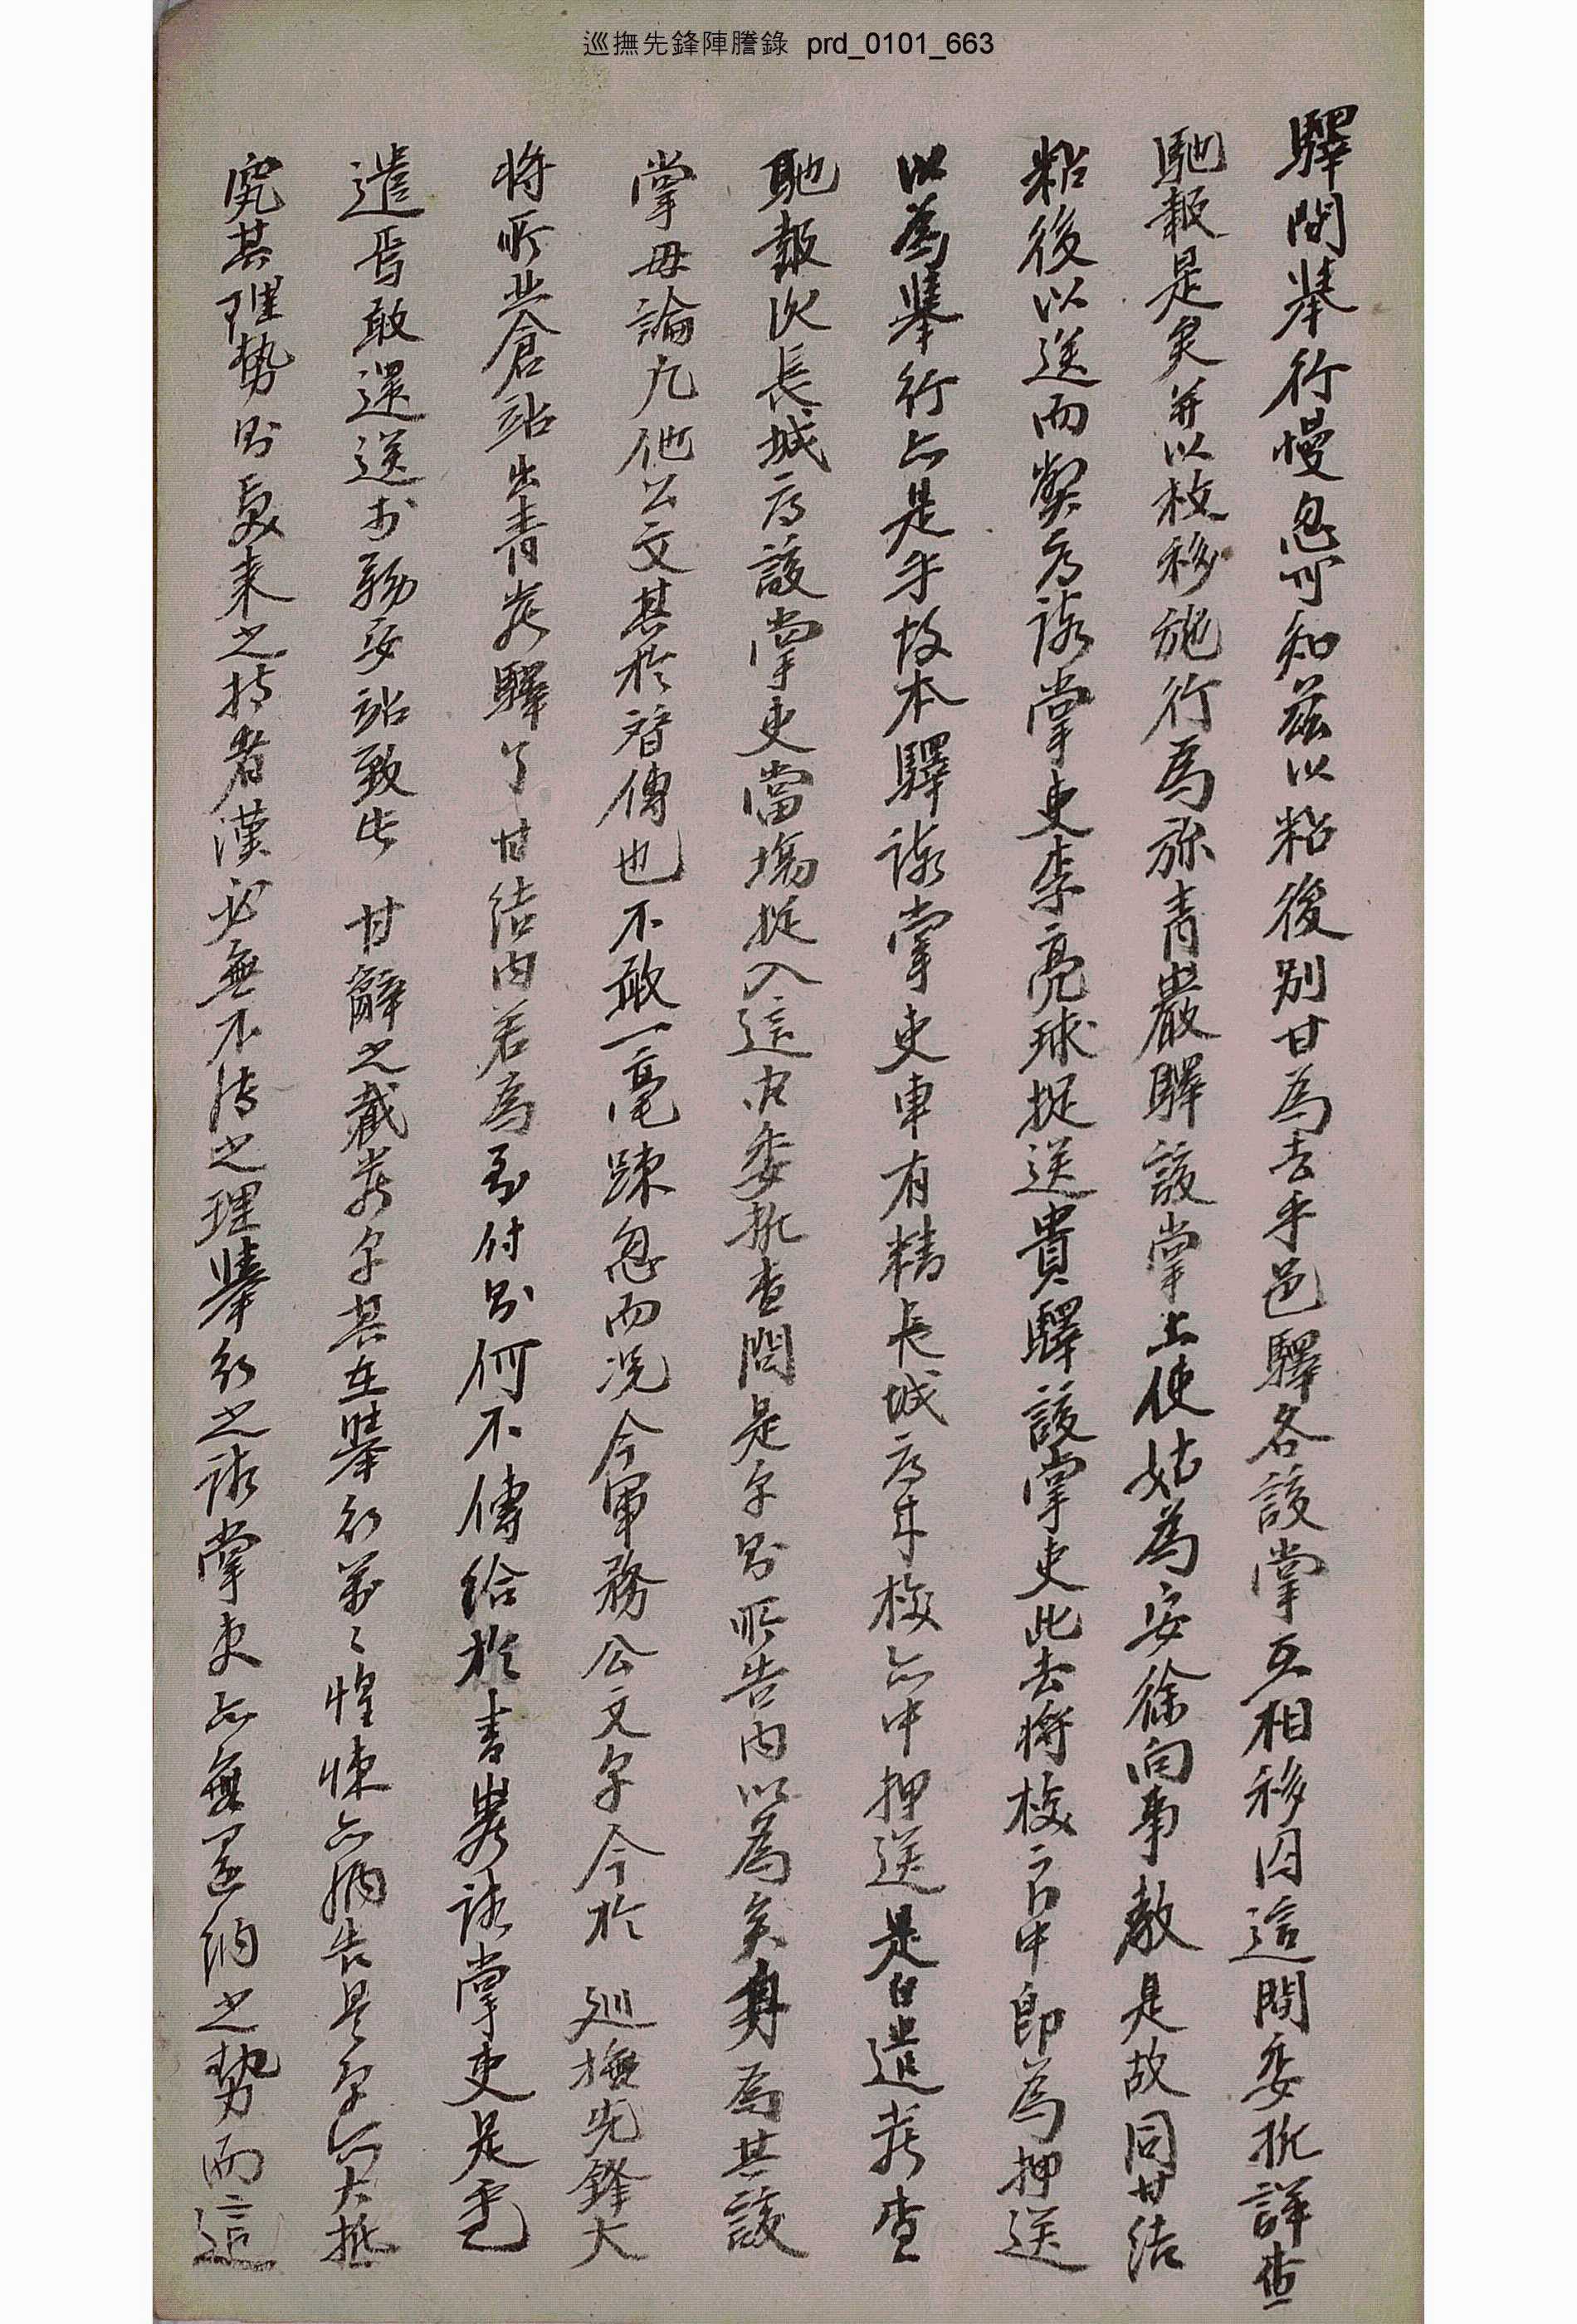 巡撫先鋒陣謄錄 prd_0101_663
驛間擧行慢忽可知玆以粘後別甘爲去乎邑驛各該掌互相移囚這間委折詳查
馳報是矣幷以枚移施行爲旀靑巖驛該掌上使姑爲安徐向事敎是故同甘結
粘後以送而獒首該掌吏李亮球捉送貴驛該掌吏此去將校 中卽爲押送
以爲擧行亦是乎故本驛該掌吏車有精長城 校亦中押送是白遣 查
馳報次長城 該掌吏當塲捉入這間委折查問是乎則所告內以爲矣身爲其該
掌毋論凡他公文其於替傳也不敢一毫疎忽而况今軍務公文乎今於 巡撫先鋒大
將所 倉站出靑巖驛了甘結內若爲到付則何不傳給於靑巖該掌吏是乎旀
遣焉敢還送於 站致此 甘辭之截嚴乎其在擧行萬〻惶悚亦納告是乎所大抵
究其理勢則 來之持者漢必無不傳之理擧行之該掌吏亦無還納之勢而這